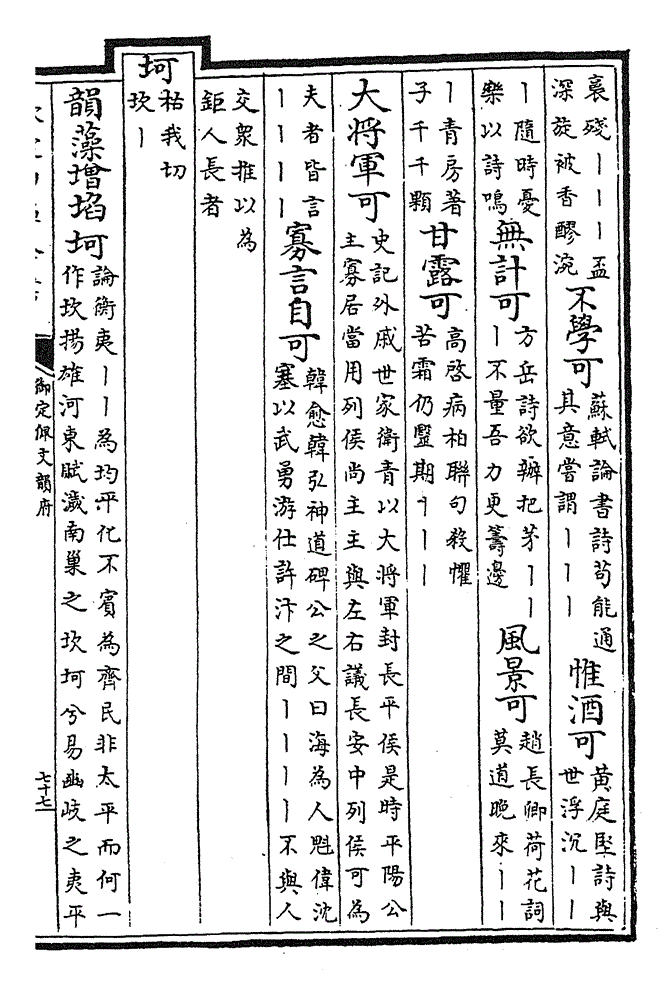 裛殘丨丨丨盃深旋被香醪涴不學可蘇軾論書詩苟能通其意嘗謂丨丨丨惟酒可黄庭堅詩與世浮沉丨丨
丨隨時憂樂以詩鳴無計可方岳詩欲辦把茅丨丨丨不量吾力更籌邊風景可趙長卿荷花詞莫道晚來丨丨
丨青房著子千千顆甘露可高啓病柏聯句殺懼苦霜仍豎期丨丨丨
大將軍可史記外戚世家衛青以大將軍封長平侯是時平陽公主寡居當用列侯尚主主與左右議長安中列侯可為
夫者皆言丨丨丨丨寡言自可韓愈韓弘神道碑公之父曰海為人魁偉沈塞以武勇游仕許汴之間丨丨丨丨不與人
交衆推以為鉅人長者
坷枯我切坎丨
韻藻增埳坷論衡夷丨丨為均平化不賓為齊民非太平而何一作坎揚雄河東賦瀎南巢之坎坷兮易豳岐之夷平
御定佩文韻府
七十七